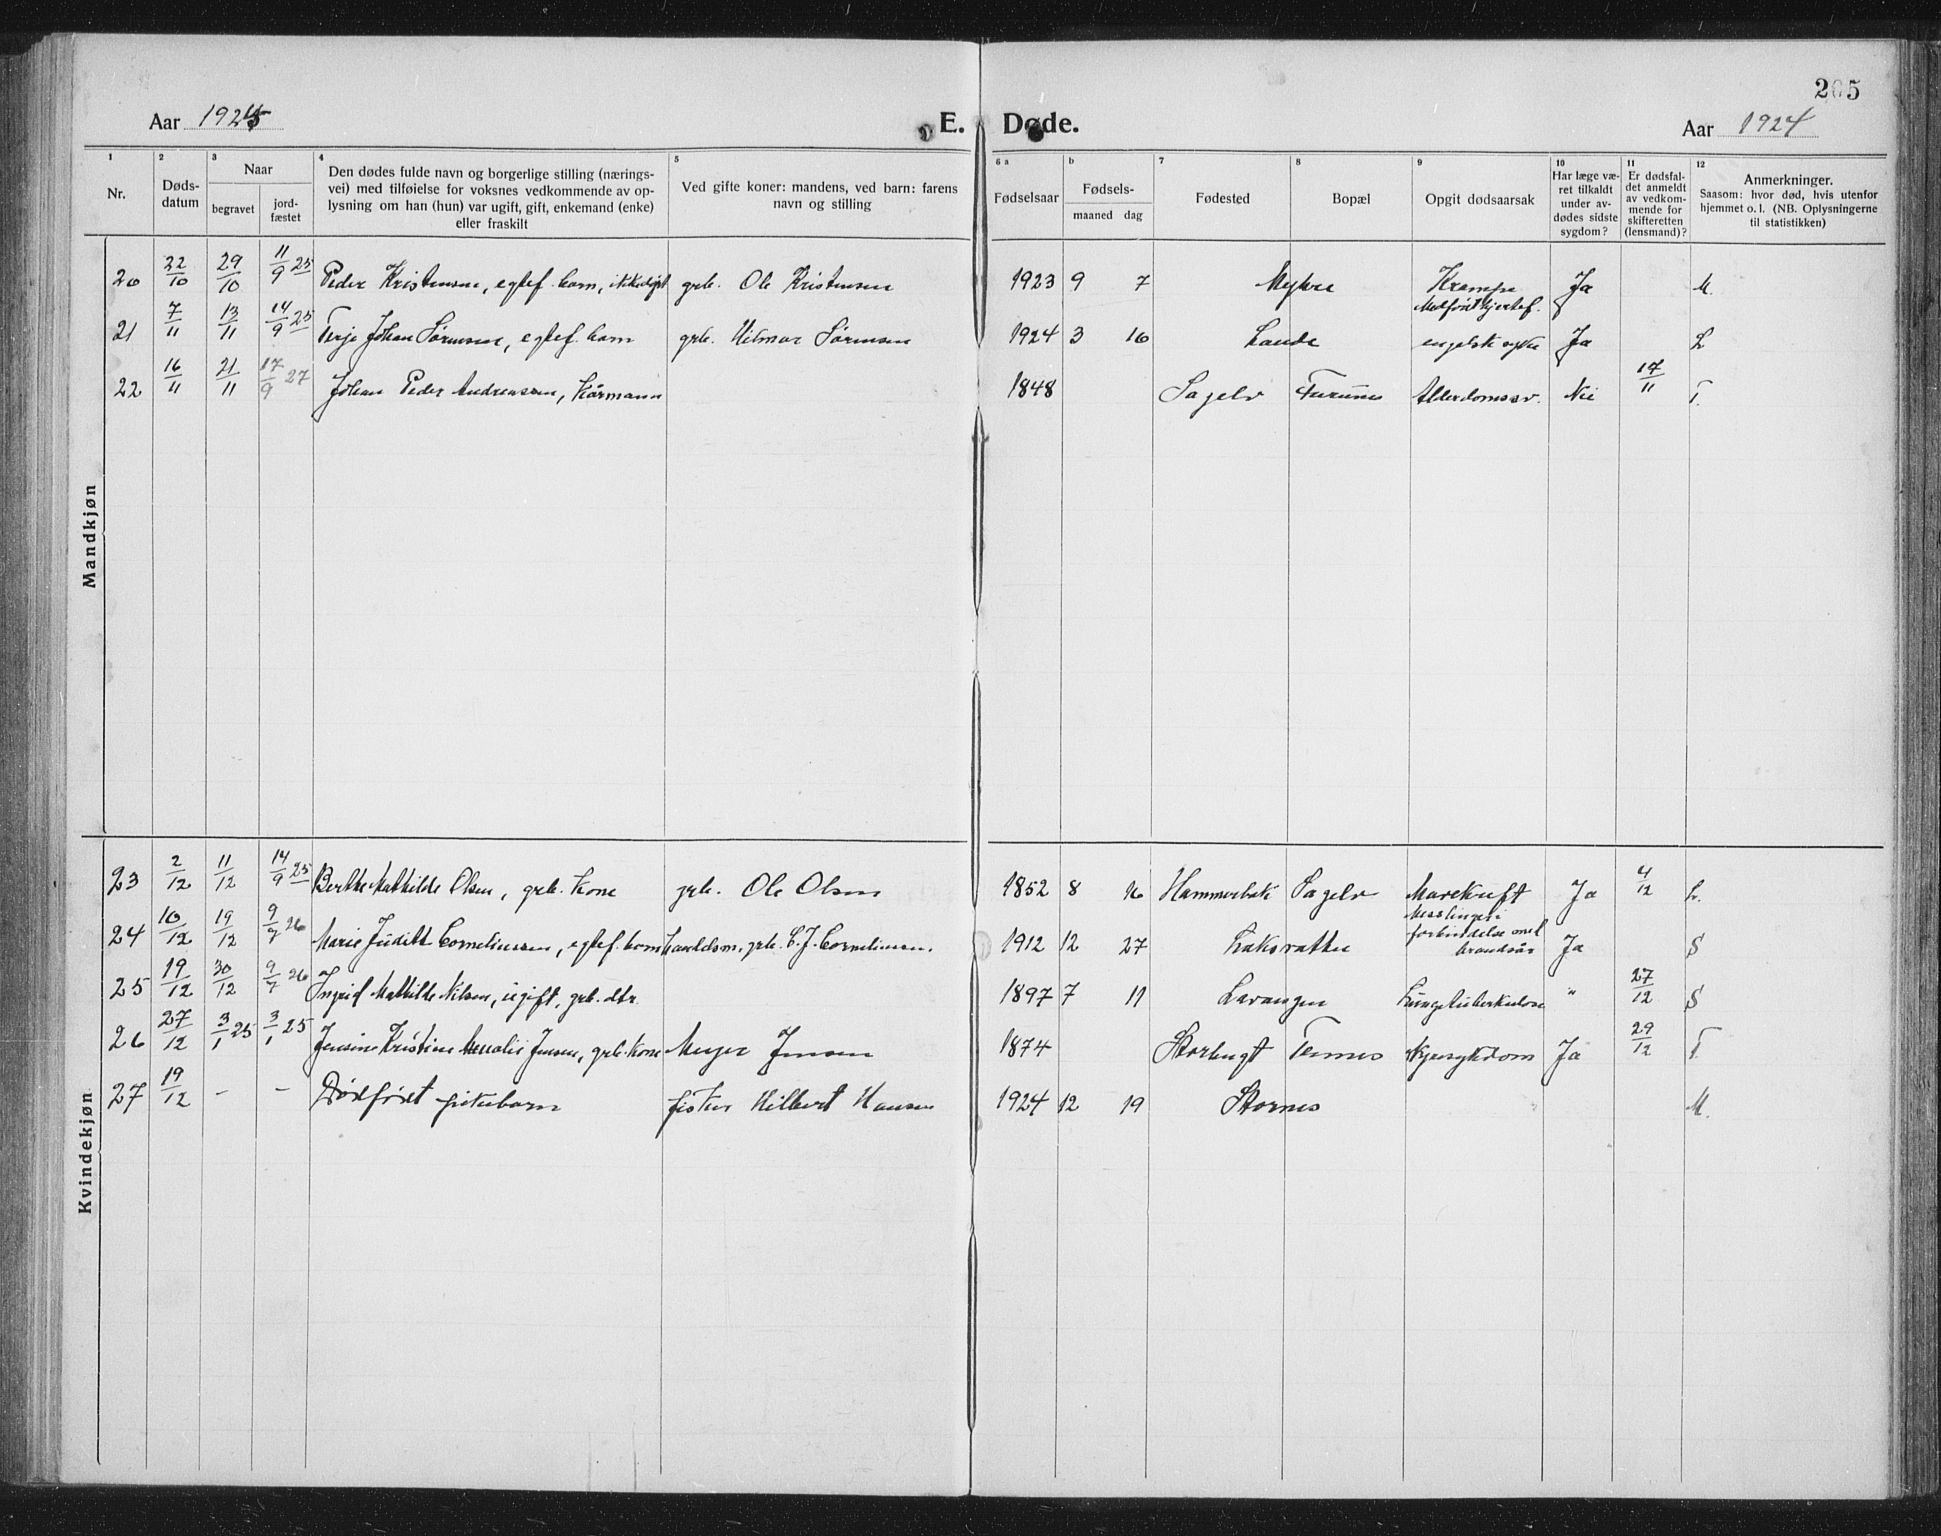 205
Aar 1924 E. Døde. Aar 1924
1 2 3 4 5 6 a b 7 8 9 10 11 12
Nr.
Døds-
datum
Naar
begravet
jord-
fæstet
Den dødes fulde navn og borgerlige stilling (nærings-
vei) med tilføielse for voksnes vedkommende av op-
lysning om han (hun) var ugift, gift, enkemand (enke)
eller fraskilt
Ved gifte koner: mandens, ved barn: farens
navn og stilling
Fødselsaar
Fødsels-
maaned dag
Fødested
Bopæl
Opgit dødsaarsak
Har læge væ-
ret tilkaldt
under av-
dødes sidste
sygdom?
Er dødsfal-
det anmeldt
av vedkom-
mende for
skifteretten
(lensmand)?
Anmerkninger.
Saasom: hvor død, hvis utenfor
hjemmet o. l. (NB. Oplysningerne
til statistikken)
Mandkjøn
20 22/10 29/10 11/9 25 Peder Kristensen, egtef. barn, grb. Ole Kristensen 1923 9 7 Myhre Krampe Ja M.
21 7/11 13/11 14/9 25 Terje Johan Sørensen, egtef. barn grb. Hilmar Sørensen 1924 3 16 Medfødt hjertef. engelsk syke Ja L
22 16/11 21/11 17/9 27 Johan Peder Andreassen, kårmann 1848 Sagelv Furunes Alderdomssv. Nei 17/11 T.
Kvindekjøn
23 2/12 11/12 14/9 25 Berthe Mathilde Olsen, grb. kone grb. Ole Olsen 1852 8 16 Hammerbak Sagelv Mavekræft Ja 4/12 L.
24 10/12 19/12 9/7 26 Marie Judith Corneliussen, egtef. barn grb. C. J. Corneliussen. 1912 12 27 Laksvatn Messlinger i forbindelse med brandsår Ja S
25 19/12 30/12 9/7 26 Ingrid Mathilde Nilsen, ugift, grb. dtr. 1897 7 11 Lavangen Lungetuberkulose " 27/12 S
26 27/12 3/1 25 3/1 25 Jensine Kristine Jensen, grb. kone Meyer Jensen 1874 Storbugt Tennes Ja 29/12 T.
27 19/12 - - Dødfødt pikebarn fisker Hilbert Hansen 1924 12 19 Stornes M.